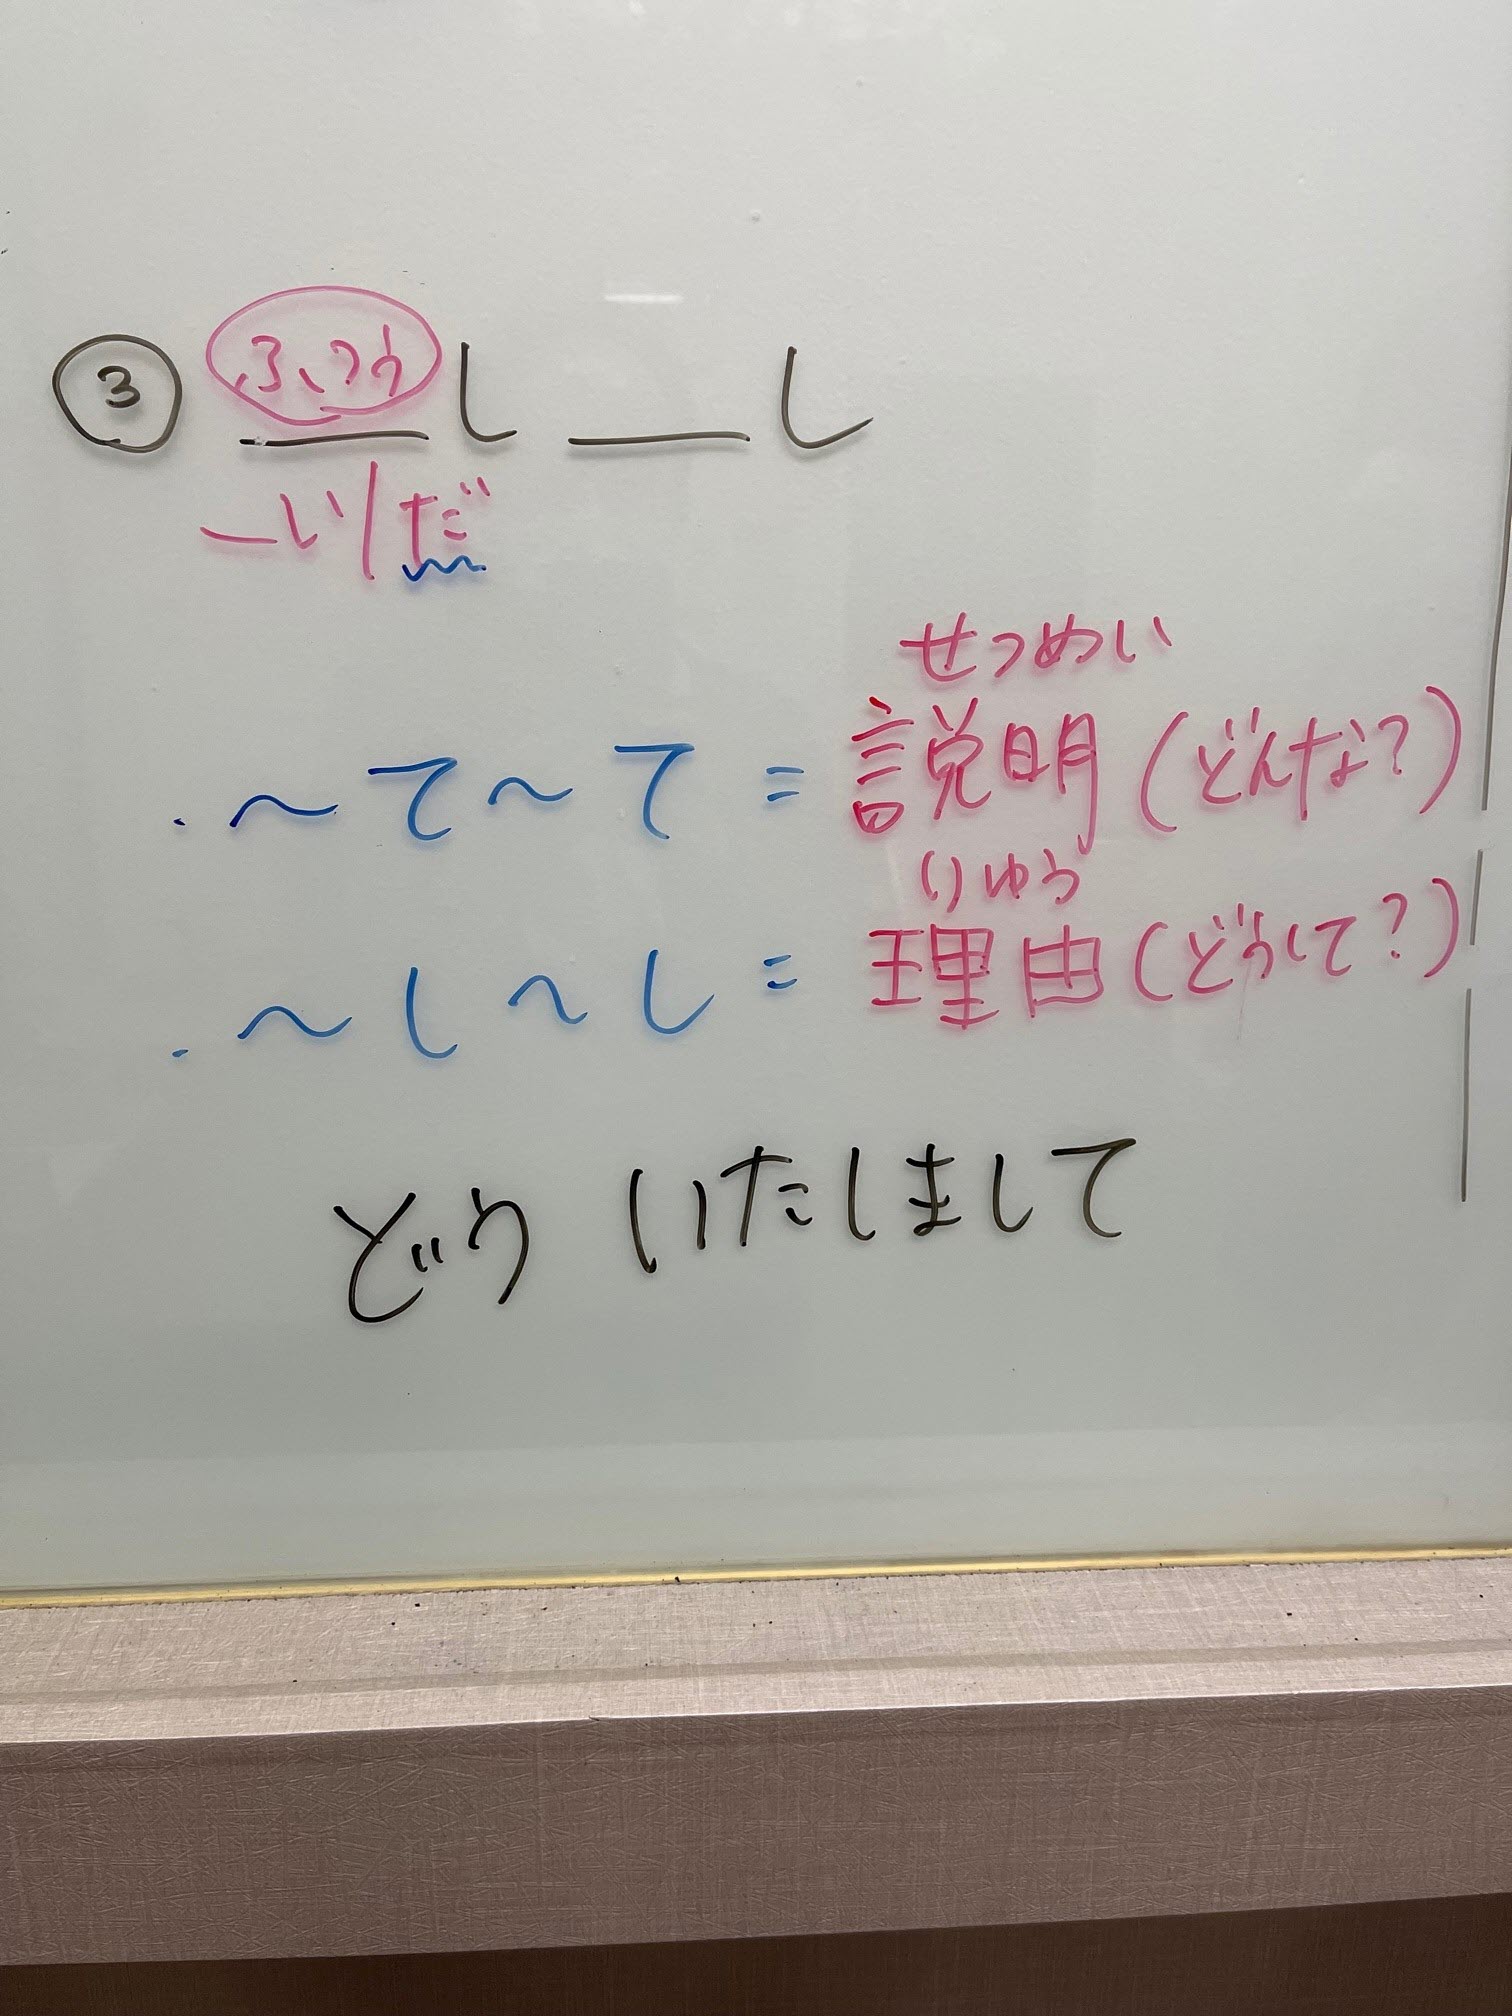 ③ ふつう し ___ し
ーい/だ
せつめい
・～て～て = 説明(どんな?)
りゆう
・～し～し = 理由(どうして?)
どう いたしまして